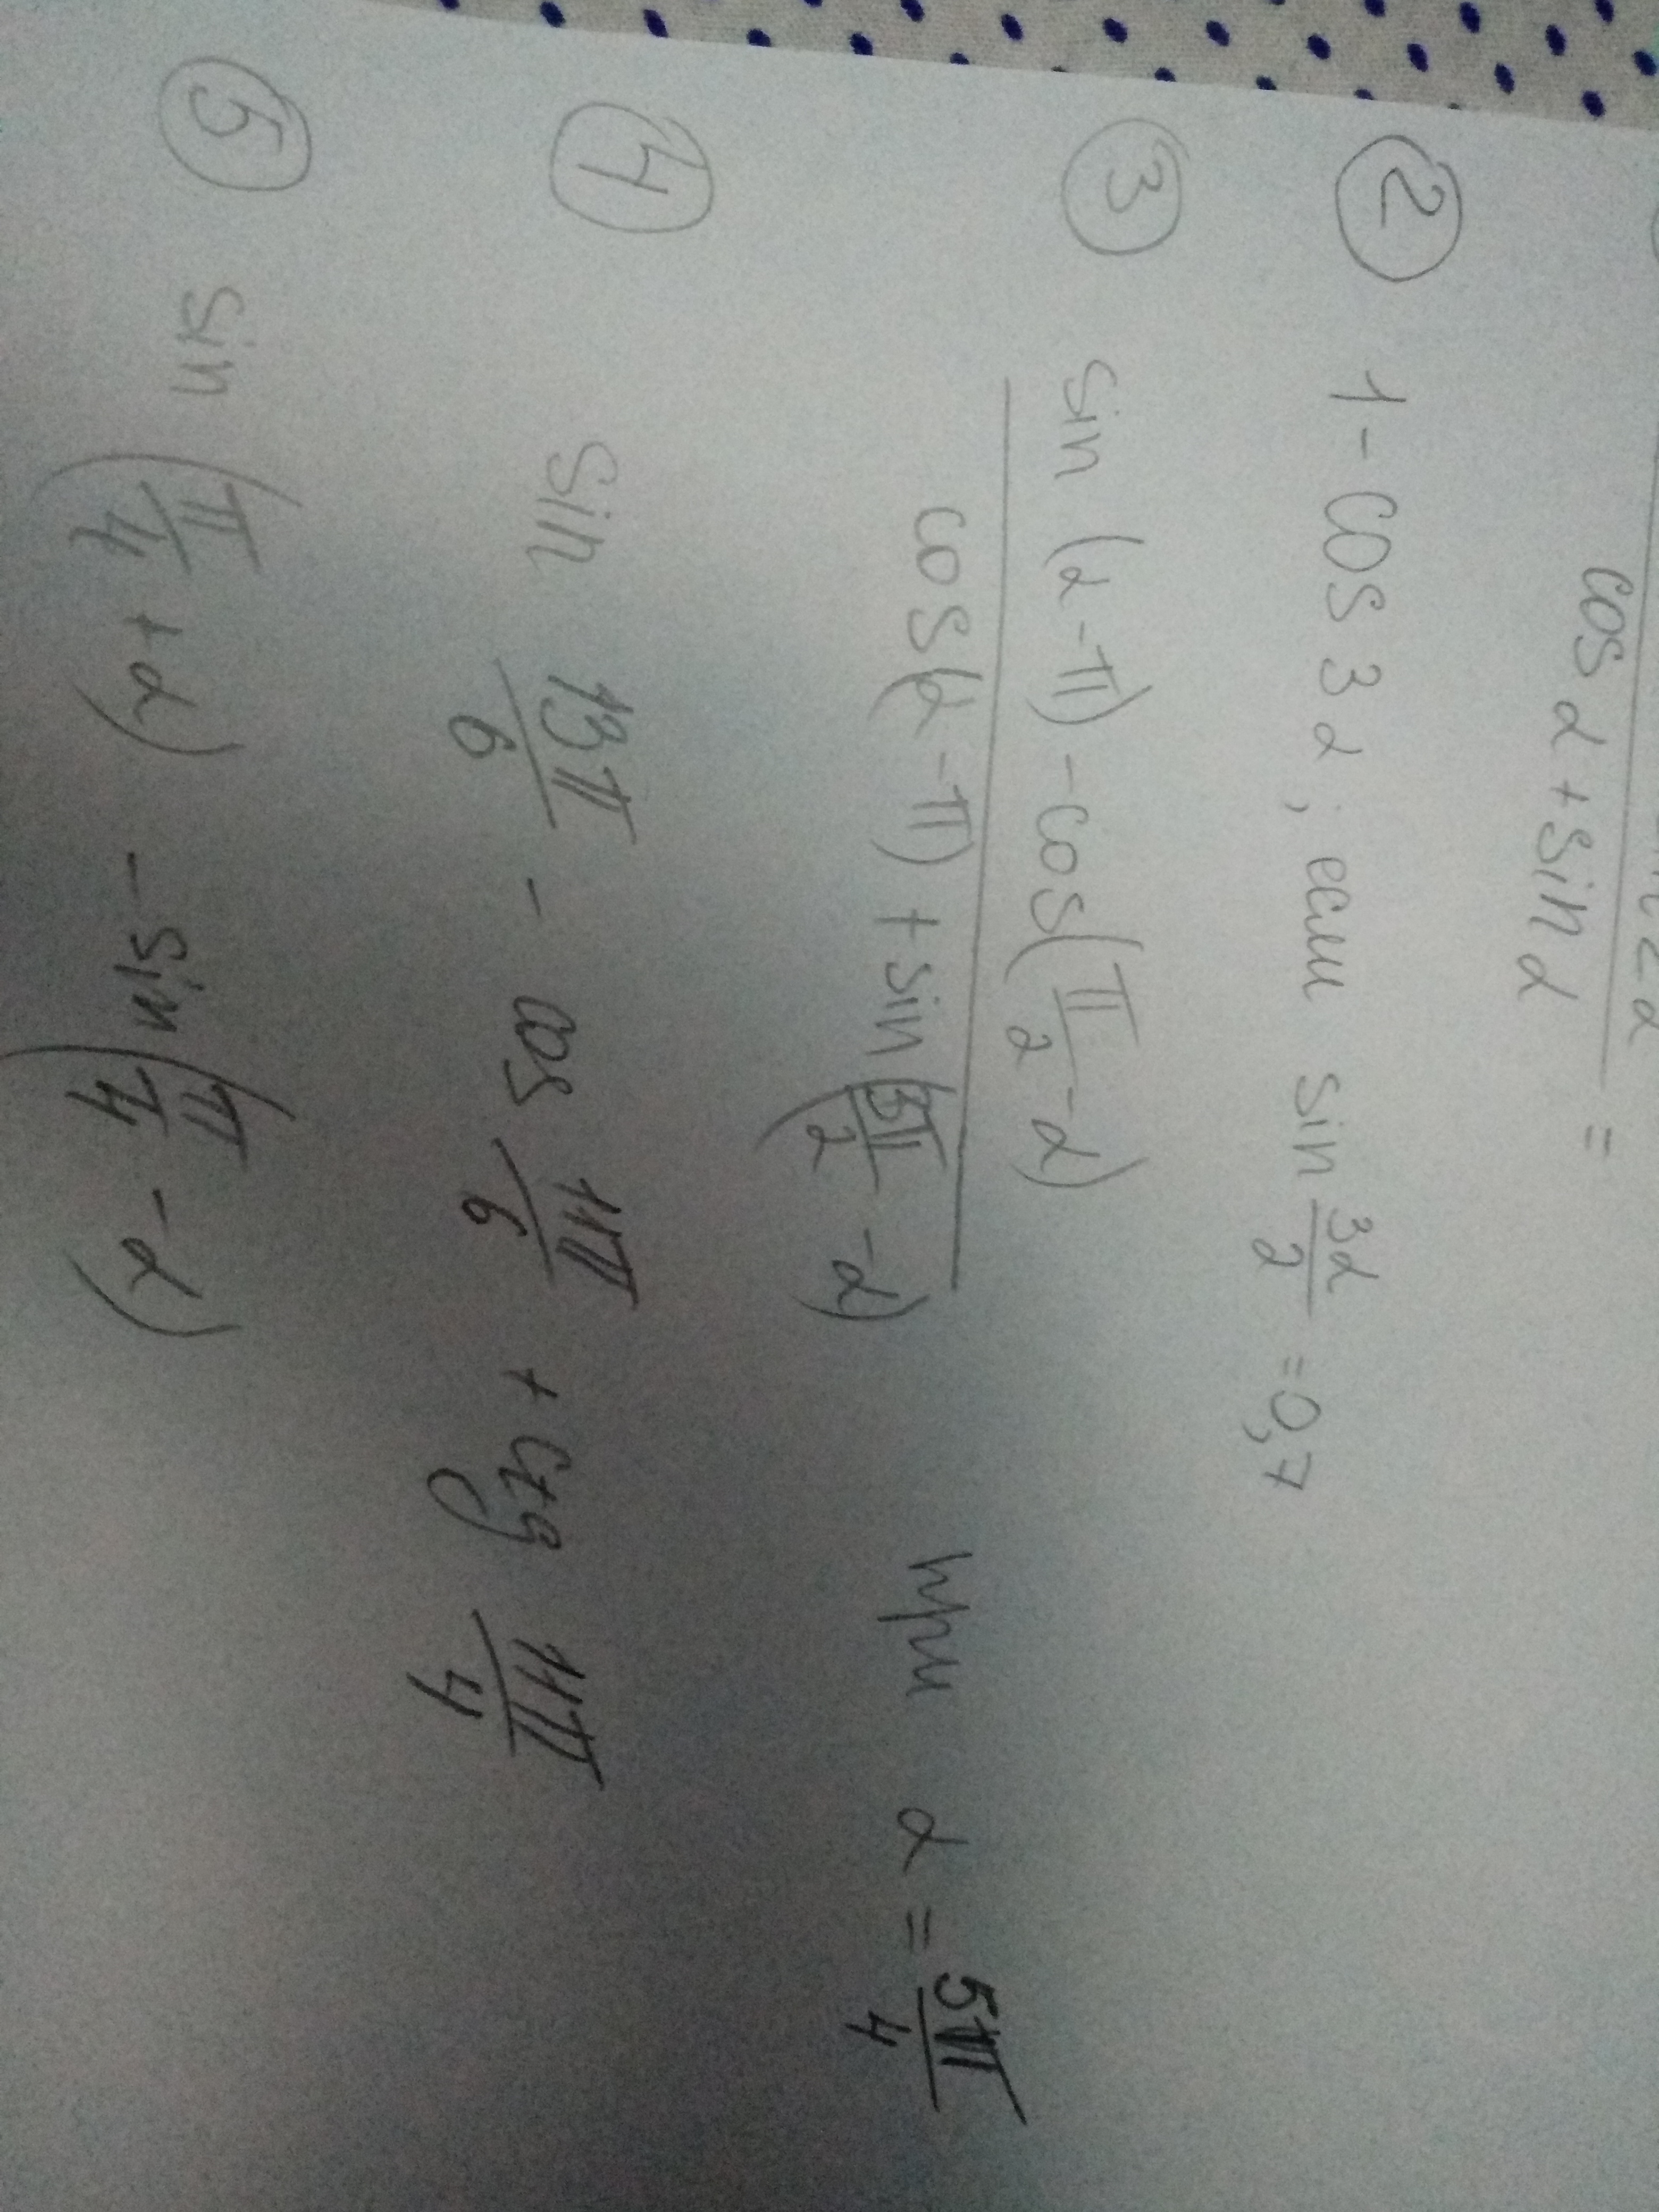 sin 2α
cos α + sin α =
② 1 - cos 3α ; если sin 3α/2 = 0,7
③ sin (α - π) - cos(π/2 - α)
cos(α - π) + sin(3π/2 - α) при α = 5π/4
④ sin 13π/6 - cos 11π/6 + ctg 11π/4
⑤ sin (π/4 + α) - sin(π/4 - α)